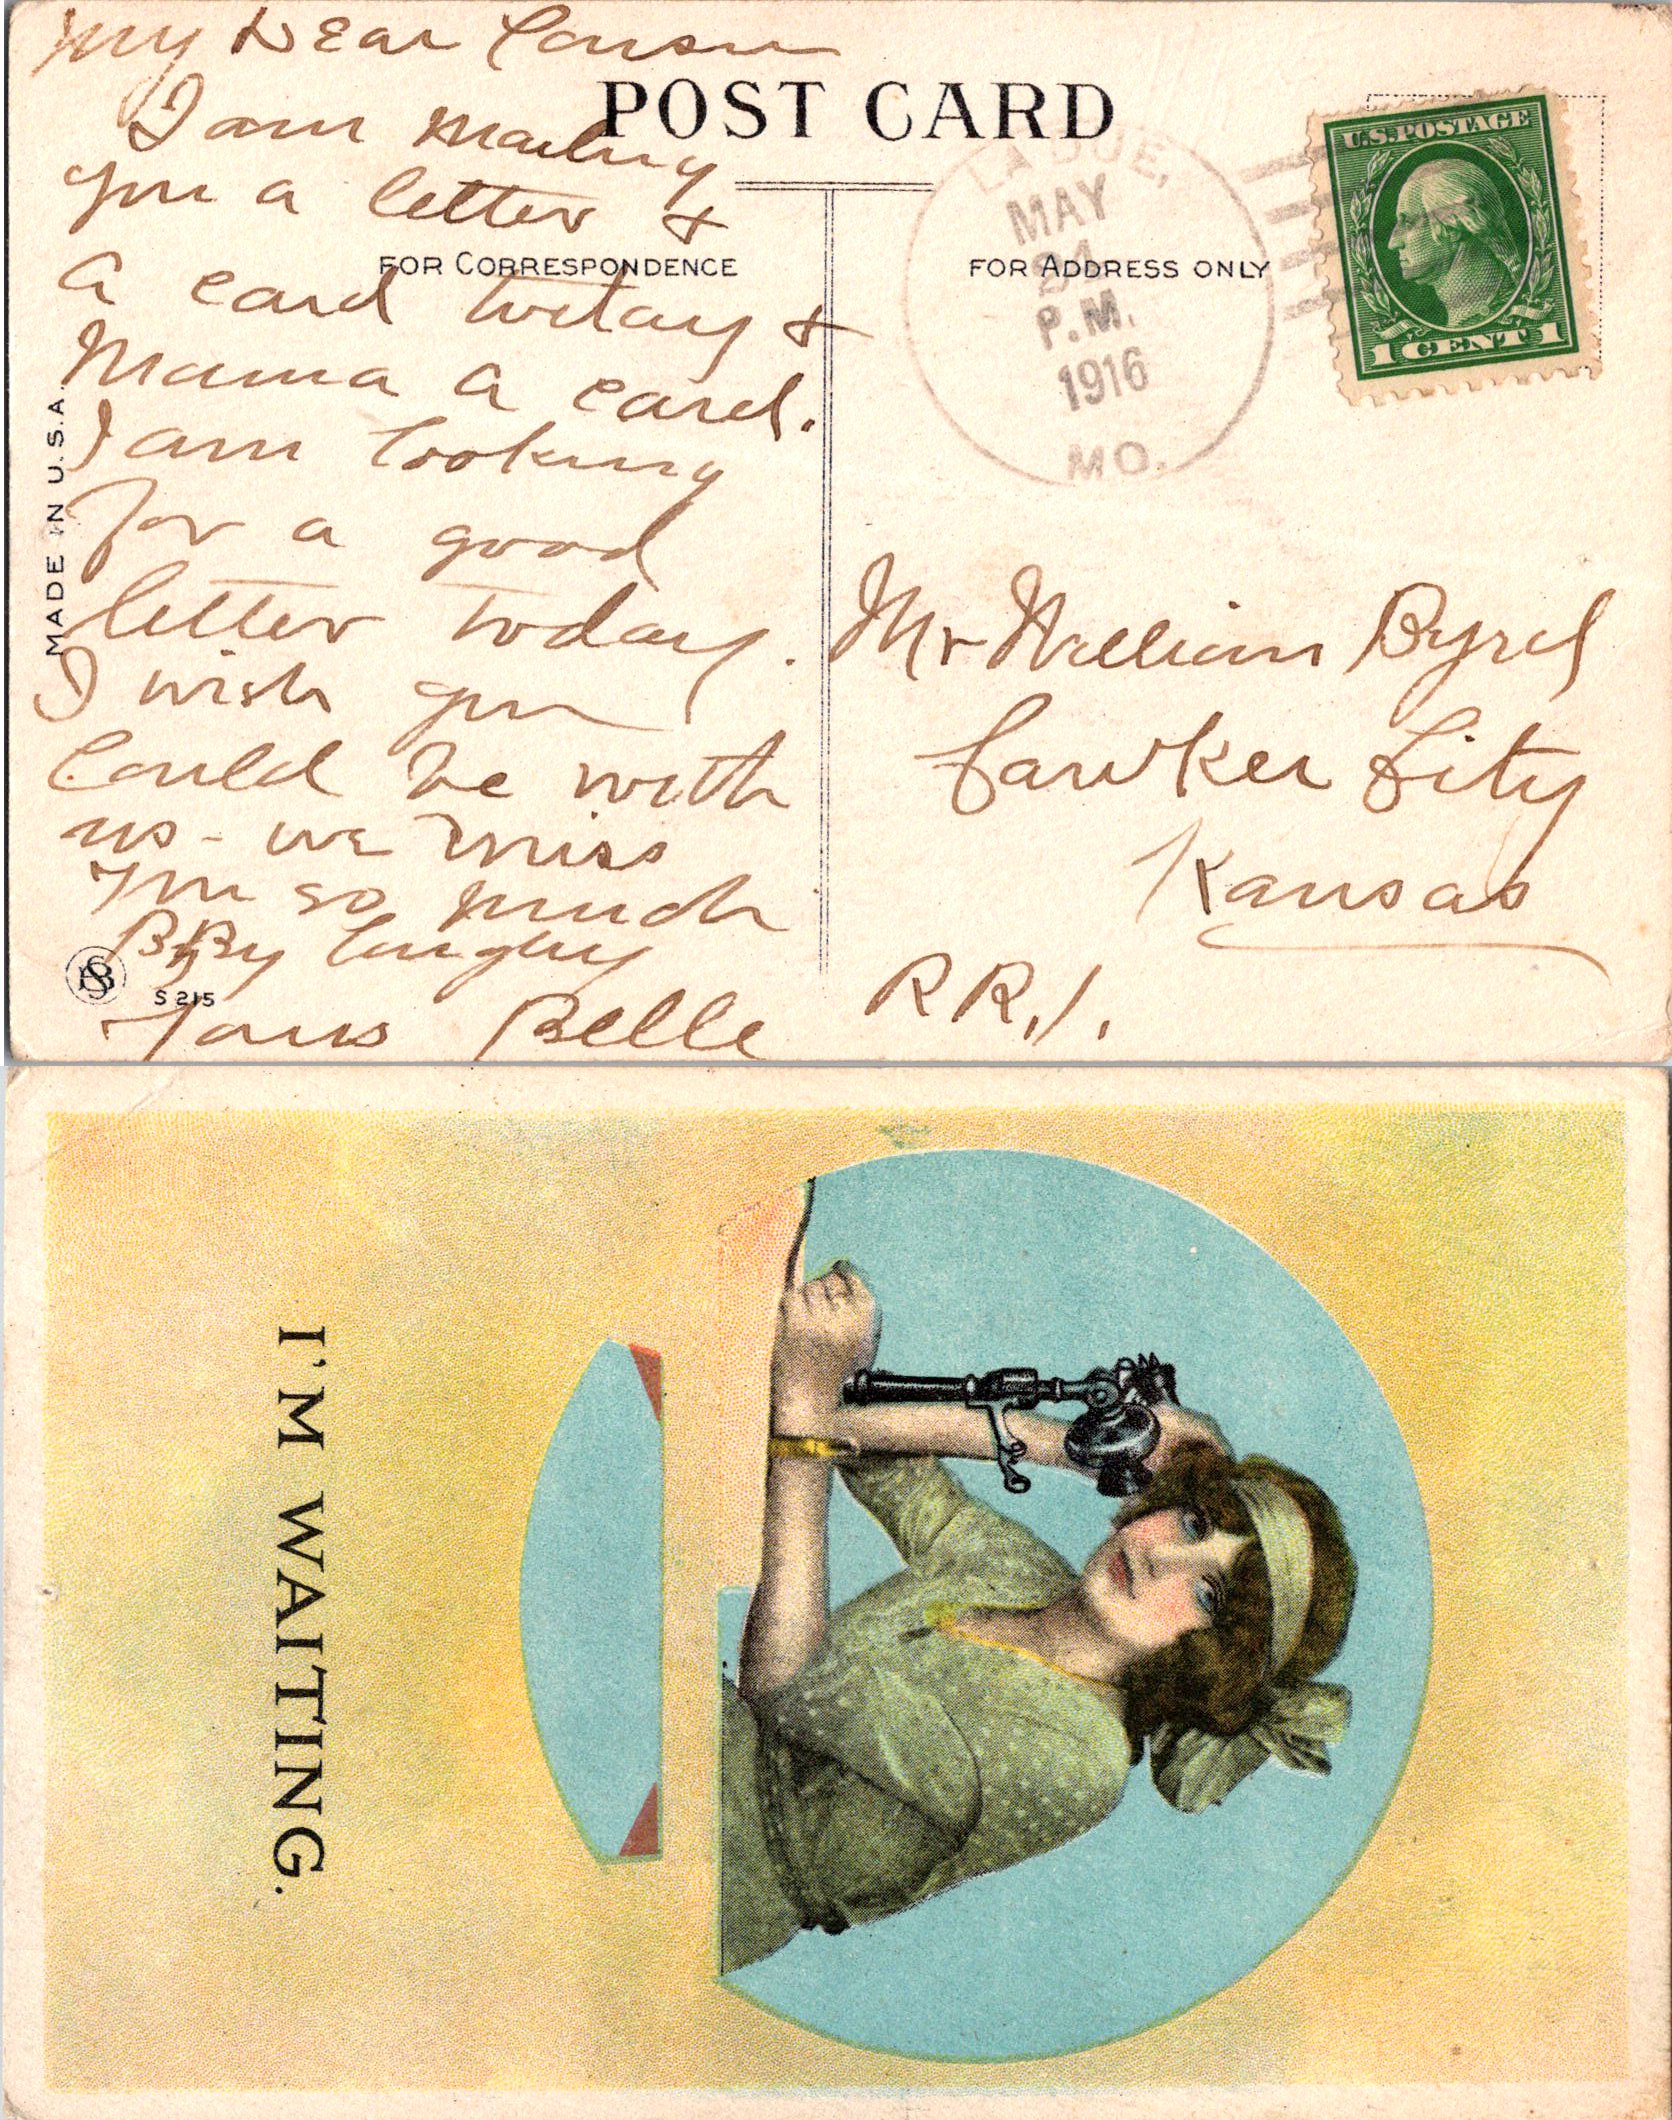 My Dear Cousin
POST CARD
I am mailing
you a letter +
FOR CORRESPONDENCE
a card today +
Mama a card.
I am looking
for a good
letter today.
I wish you
could be with
us - we miss
you so much
By By
Yours Belle
MADE IN U.S.A.
S 215
FOR ADDRESS ONLY
LA DUE,
MAY
P.M.
1916
MO.
U.S. POSTAGE
1 CENT 1
Mr William Byrd
Cawker City
Kansas
R R. 1.
I'M WAITING.